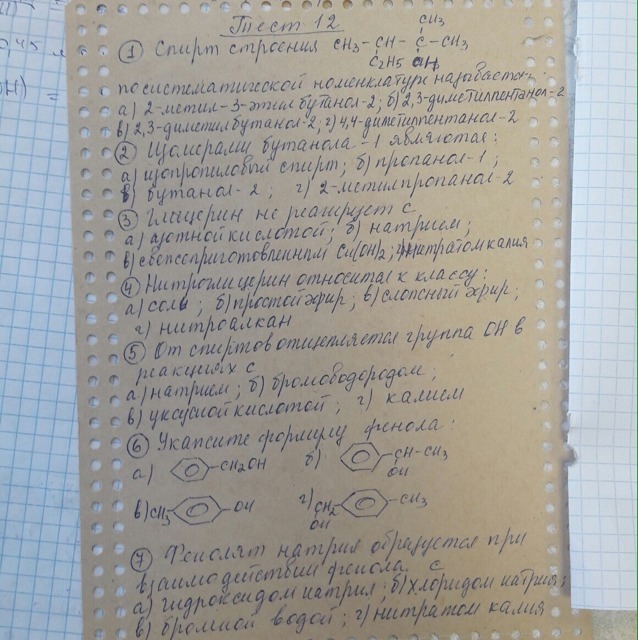 Тест 12
CH3
① Спирт строения CH3-CH-C-CH3
C2H5 OH
по систематической номенклатуре называется:
а) 2-метил-3-этилбутанол-2; б) 2,3-диметилпентанол-2
в) 2,3-диметилбутанол-2; г) 4,4-диметилпентанол-2
② Изомерами бутанола-1 являются:
а) изопропиловый спирт; б) пропанол-1;
в) бутанол-2; г) 2-метилпропанол-2
③ Глицерин не реагирует с
а) азотной кислотой; б) натрием;
в) свежеприготовленным Cu(OH)2; г) нитратом калия
④ Нитроглицерин относится к классу:
а) соль; б) простой эфир; в) сложный эфир;
г) нитроалкан
⑤ От спиртов отщепляется группа OH в
реакциях с
а) натрием; б) бромоводородом;
в) уксусной кислотой; г) калием
⑥ Укажите формулу фенола:
а) -CH2OH б) -CH-CH3
OH
в) CH3- -OH г) CH2- -CH3
OH
⑦ Фенолят натрия образуется при
взаимодействии фенола с
а) гидроксидом натрия; б) хлоридом натрия;
в) бромной водой; г) нитратом калия